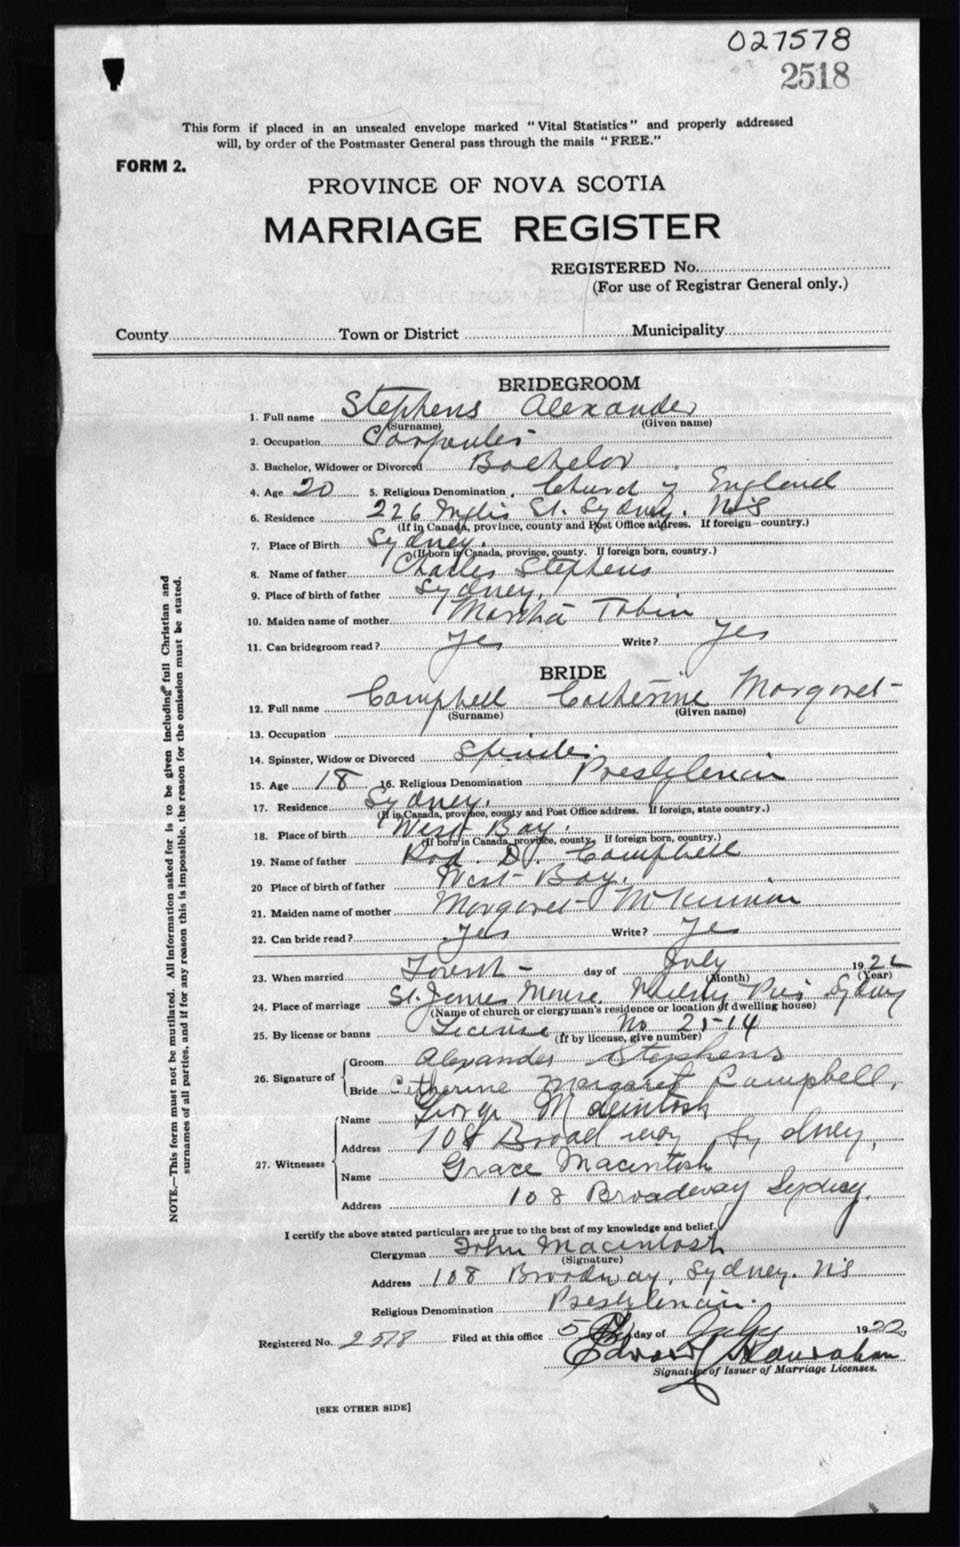 027578
2518
This form if placed in an unsealed envelope marked "Vital Statistics" and properly addressed
will, by order of the Postmaster General pass through the mails "FREE."
FORM 2.
PROVINCE OF NOVA SCOTIA
MARRIAGE REGISTER
REGISTERED No.
(For use of Registrar General only.)
County Town or District Municipality
BRIDEGROOM
1. Full name Stephens Alexander
(Surname) (Given name)
2. Occupation Carpenter
3. Bachelor, Widower or Divorced Bachelor
4. Age 20 5. Religious Denomination Church of England
6. Residence 226 Inglis St. Sydney. N.S
(If in Canada, province, county and Post Office address. If foreign—country.)
7. Place of Birth Sydney.
(If born in Canada, province, county. If foreign born, country.)
8. Name of father Charles Stephens
9. Place of birth of father Sydney.
10. Maiden name of mother Martha Tobin
11. Can bridegroom read? Yes Write? Yes
BRIDE
12. Full name Campbell Catherine Margaret
(Surname) (Given name)
13. Occupation
14. Spinster, Widow or Divorced Spinster
15. Age 18 16. Religious Denomination Presbyterian
17. Residence Sydney.
(If in Canada, province, county and Post Office address. If foreign, state country.)
18. Place of birth West Bay.
(If born in Canada, province, county. If foreign born, country.)
19. Name of father Rod. D. Campbell
20 Place of birth of father West Bay.
21. Maiden name of mother Margaret McKinnon
22. Can bride read? Yes Write? Yes
23. When married day of July 1922
(Month) (Year)
24. Place of marriage St. James Manse, Sydney
(Name of church or clergyman's residence or location of dwelling house)
25. By license or banns License. No 2514
(If by license, give number)
26. Signature of
Groom Alexander Stephens
Bride Catherine Margaret Campbell,
27. Witnesses
Name George Macintosh
Address 108 Broadway Sydney,
Name Grace Macintosh
Address 108 Broadway Sydney.
I certify the above stated particulars are true to the best of my knowledge and belief.
Clergyman John Macintosh
(Signature)
Address 108 Broadway, Sydney. N.S
Religious Denomination Presbyterian.
Registered No. 2518 Filed at this office 5 day of July 1922
Edward Hanrahan
Signature of Issuer of Marriage Licenses.
[SEE OTHER SIDE]
NOTE.—This form must not be mutilated. All information asked for is to be given including full Christian and
surnames of all parties, and if for any reason this is impossible, the reason for the omission must be stated.